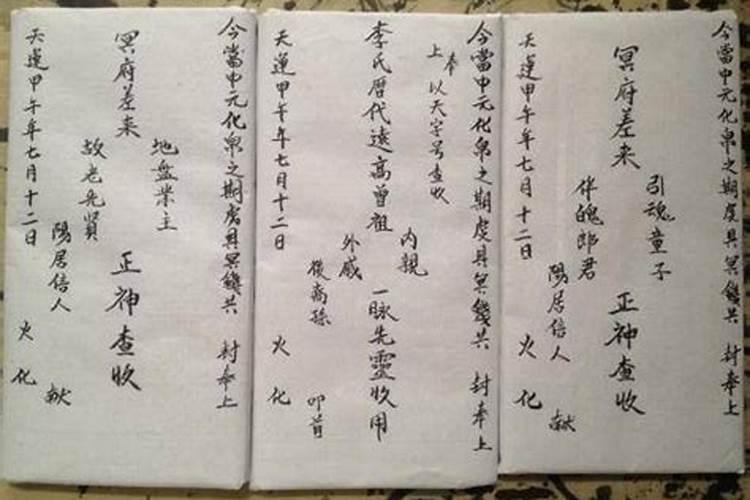 今當中元化帛之期虔具冥錢共 封奉上
引魂童子
冥府差来 正神查收
伴魄郎君
陽居信人 献
天運甲午年七月十二日 火化
今當中元化帛之期虔具冥錢共 封奉上
奉
上 以天字号查收
内親
李氏歷代遠高曾祖 一脉先靈收用
外戚
後裔孫 叩首
天運甲午年七月十二日 火化
今當中元化帛之期虔具冥錢共 封奉上
地盤業主
冥府差来 正神查收
故老先賢
陽居信人 献
天運甲午年七月十二日 火化